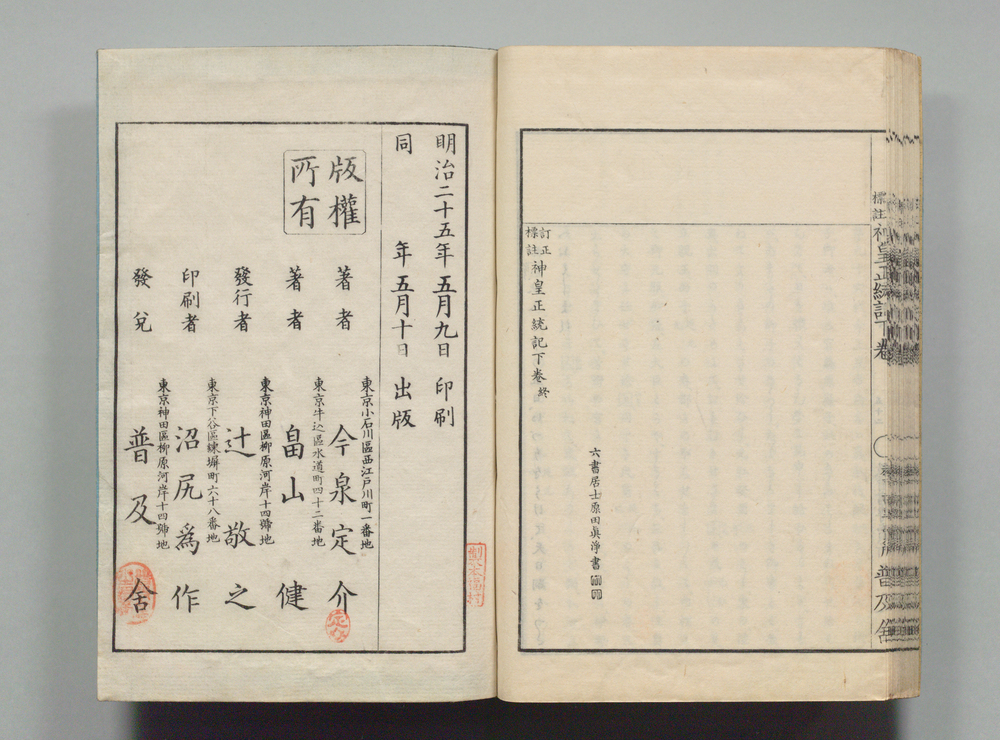 標註神皇正統記下卷
普及舍
訂正
標註
神皇正統記下卷終
六書居士原田眞淨書
明治二十五年五月九日印刷
同年五月十日出版
版權
所有
東京小石川區西江戸川町一番地
著者 今泉定介
東京牛込區水道町四十二番地
著者 畠山健
東京神田區柳原河岸十四號地
發行者 辻敬之
東京下谷區練塀町六十八番地
印刷者 沼尻爲作
東京神田區柳原河岸十四號地
發兌 普及舍